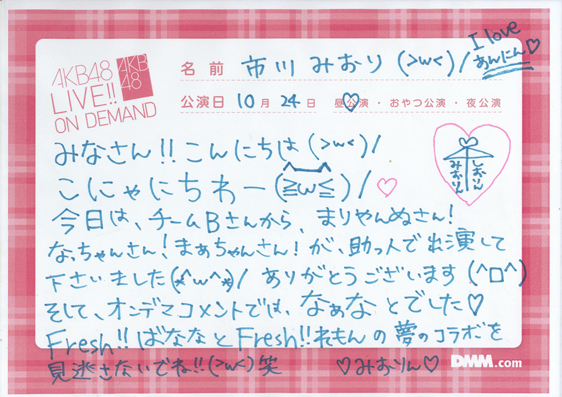 AKB48
LIVE!!
ON DEMAND
AKB
48
名前 市川みおり (>ω<)/
I love
あんにん♡
公演日 10月24日 昼公演・おやつ公演・夜公演
みなさん!!こんにちは(>ω<)/
こにゃにちわー(≧ω≦)/♡
しおりん
みおりん
今日は、チームBさんから、まりやんぬさん!
なっちゃんさん!まぁちゃんさん!が、助っ人で出演して
下さいました(*^ω^*)/ ありがとうございます(^□^)
そして、オンデマコメントでは、なぁなとでした♡
Fresh!!ばななとFresh!!れもんの夢のコラボを
見逃さないでね!!(>ω<)笑 ♡みおりん♡
DMM.com